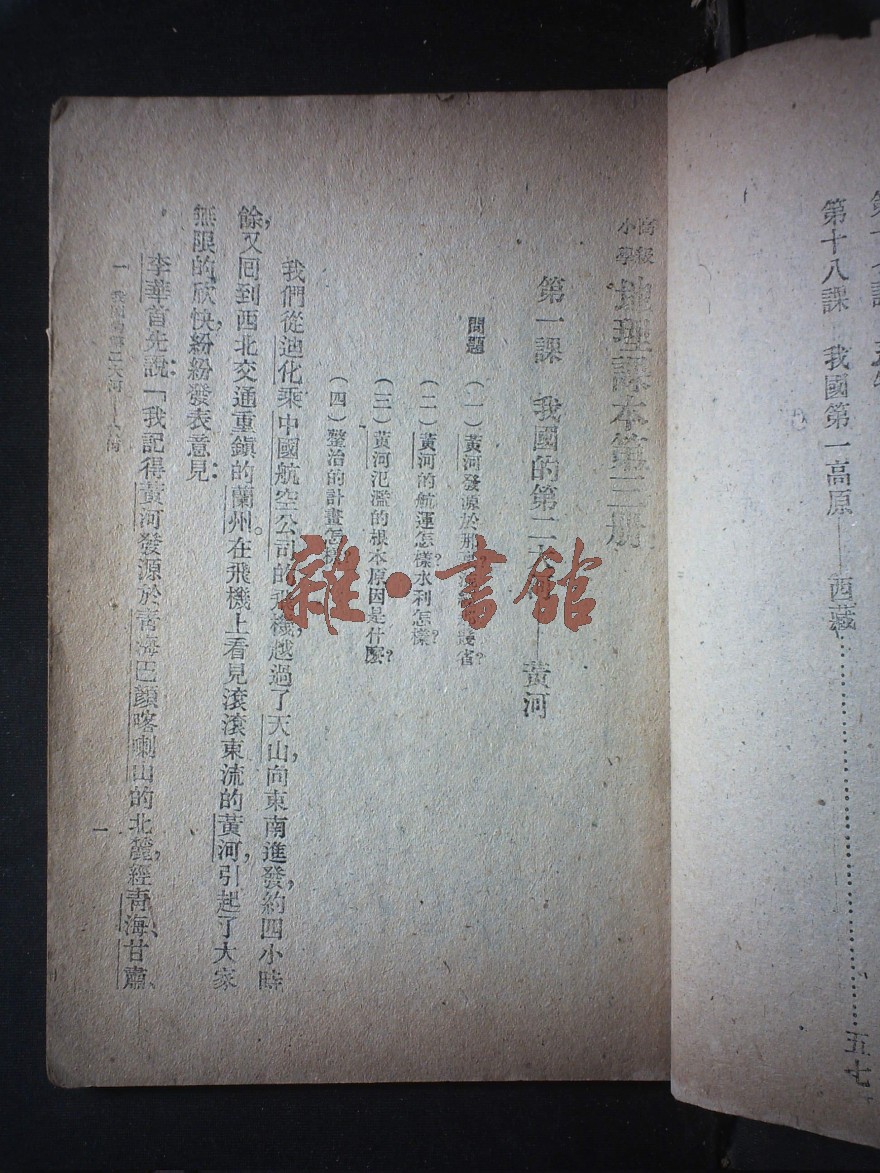 第十八課 我國第一高原——西藏……五七
高級
小學
地理課本第三册
第一課 我國的第二大河——黃河
問題 (一)黃河發源於那 省?
(二)黃河的航運怎樣?水利怎樣?
(三)黃河氾濫的根本原因是什麼?
(四)整治的計畫怎樣
我們從迪化乘中國航空公司的飛機,越過了天山,向東南進發,約四小時
餘,又囘到西北交通重鎮的蘭州。在飛機上看見滾滾東流的黃河,引起了大家
無限的欣快,紛紛發表意見:
李華首先說:「我記得黃河發源於青海巴顏喀喇山的北麓,經青海、甘肅、
一 我國的第二大河——黃河
一
雜·書館